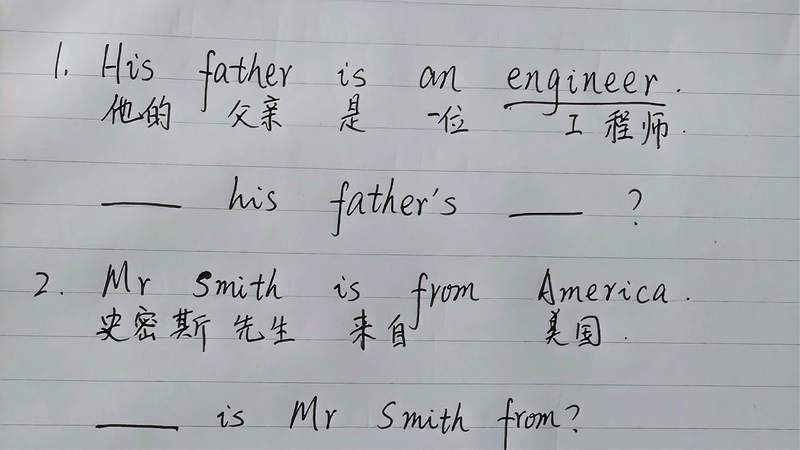 1. His father is an engineer.
他的 父亲 是 一位 工程师.
____ his father's ____ ?
2. Mr Smith is from America.
史密斯 先生 来自 美国.
____ is Mr Smith from?